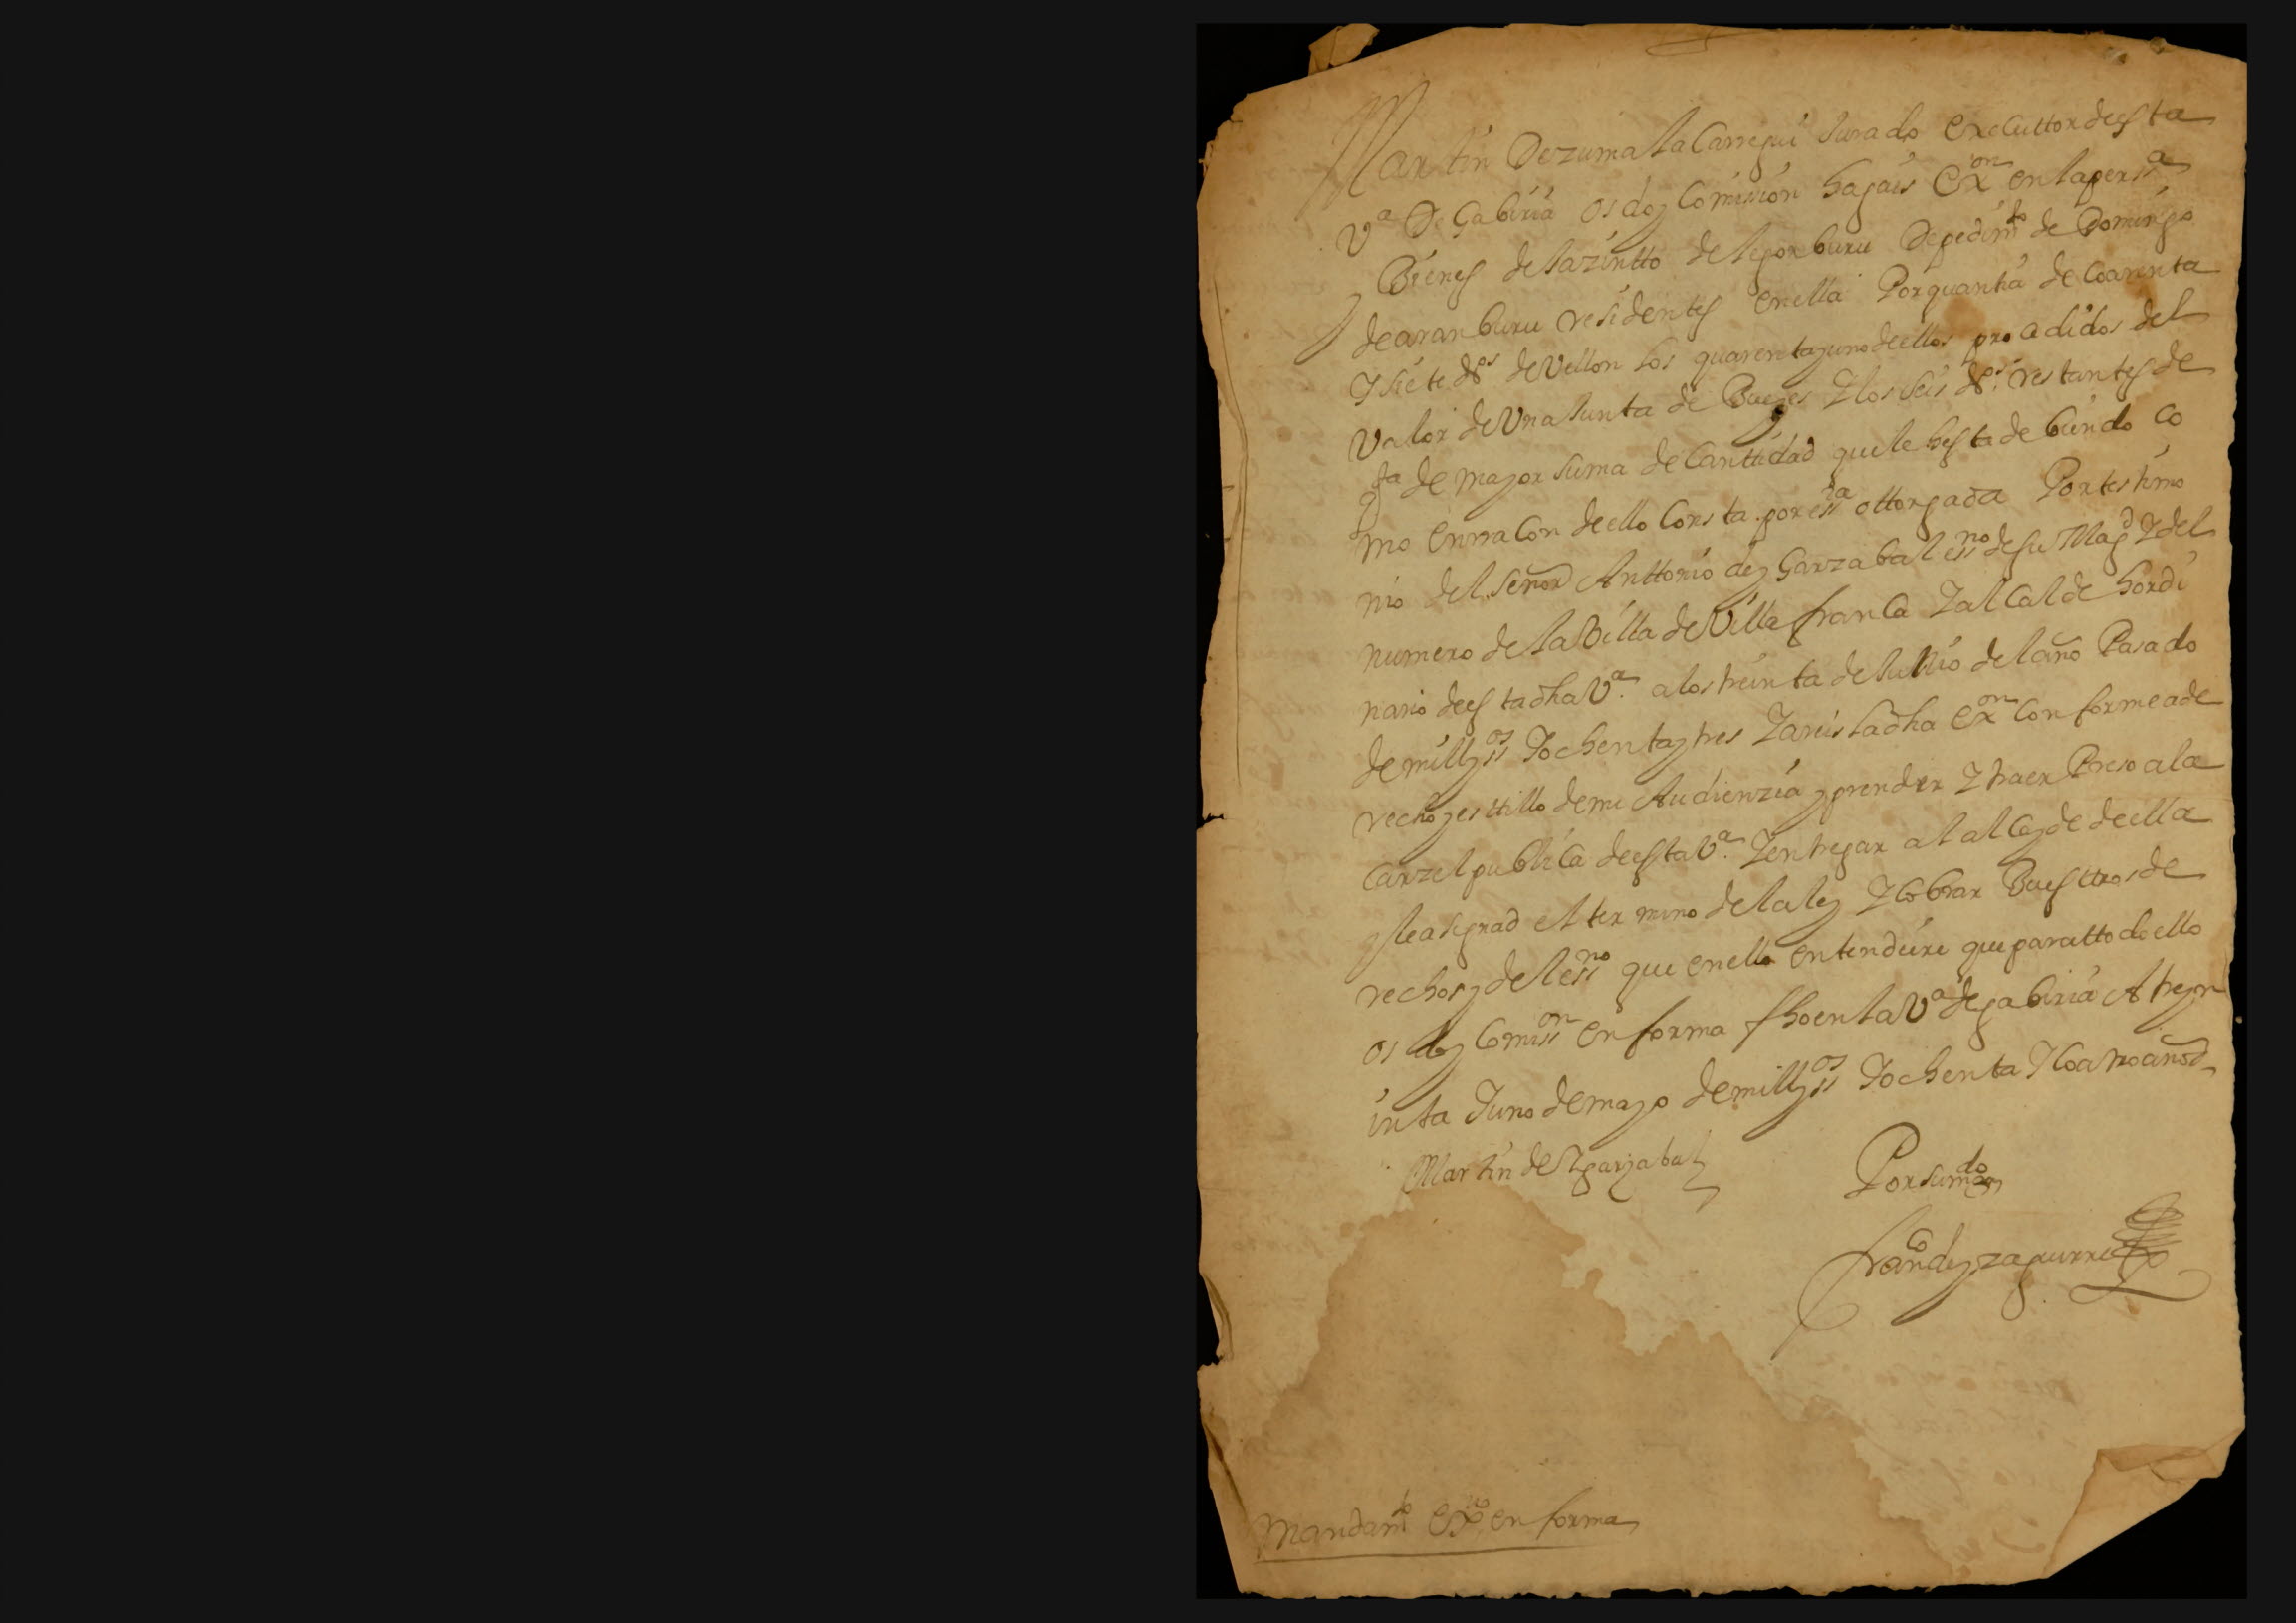 Martin De zumalaCarregui Jurado executtor desta
Vª De Gabiria os doy Comission hagais exon en la perssª
y Bienes de Jazintto de legorburu De pedimto de Domingo
de aranburu residentes en ella Por quantia de coarenta
Y siete dos de Vellon los quarenta y uno de ellos prosedidos del
Valor de Una Junta de Bueyes Y los seis dos restantes de
rta de mayor suma de Canttidad que le hesta debiendo co
mo en rraCon de ello Consta por essra ottorgada Por testimo
nio del Señor Anttonio de ygarzabal essno de su Magd Y del
numero de la Villa de Villafranca Y alCalde hordi
nario desta dha Vª a los treinta de Junio del año Pasado
de mill y ssos Y ochenta y tres Y areis la dha exon Conforme a de
recho y esttillo de mi Audienzia y prender Y traer Preso a la
Carzel publica desta Vª Y entregar al alCayde de ella
y le asignad el termino de la ley Y Cobrar Buesttros de
rechos y del essno que en ello entendiere que para ttodo ello
os doy Comisson en forma fho en la Vª de gabiria A trey
inta Y uno de mayo de mill y ssos Y ochenta Y Coatro años
Martin de Ygarzabal
Por su mdo
Franco de yzagurre
Mandamto exvo en forma